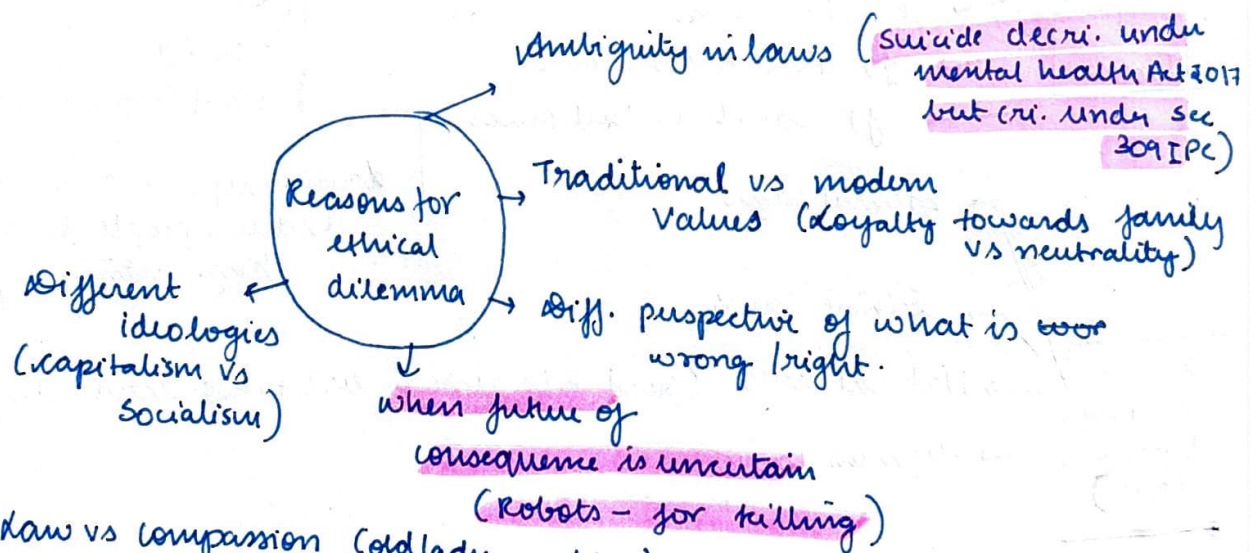 Ambiguity in laws (suicide decri. under
mental health Act 2017
but cri. under sec
309 IPC)
Reasons for
ethical
dilemma
Traditional vs modern
Values (Loyalty towards family
vs neutrality)
Diff. perspective of what is
wrong/right.
when future of
consequence is uncertain
(Robots – for killing)
Different
ideologies
(capitalism vs
Socialism)
Law vs compassion (old lady